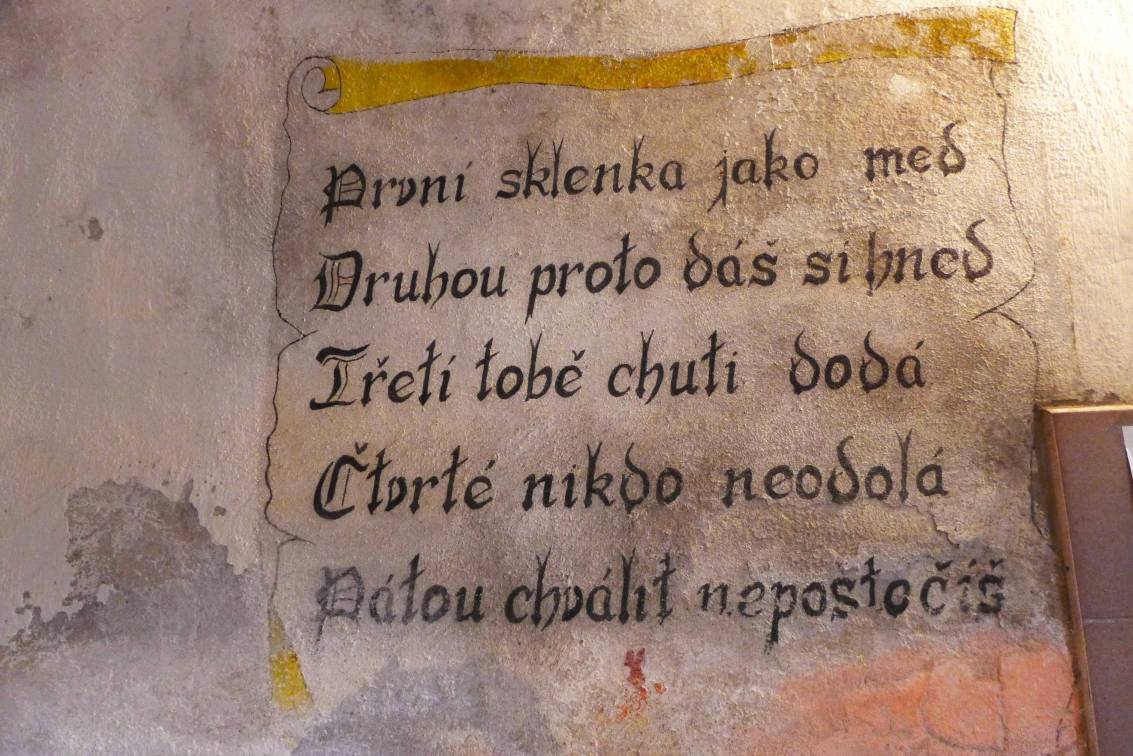 První sklenka jako med
Druhou proto dáš si hned
Třetí tobě chuti dodá
Čtvrté nikdo neodolá
Pátou chválit nepostočíš